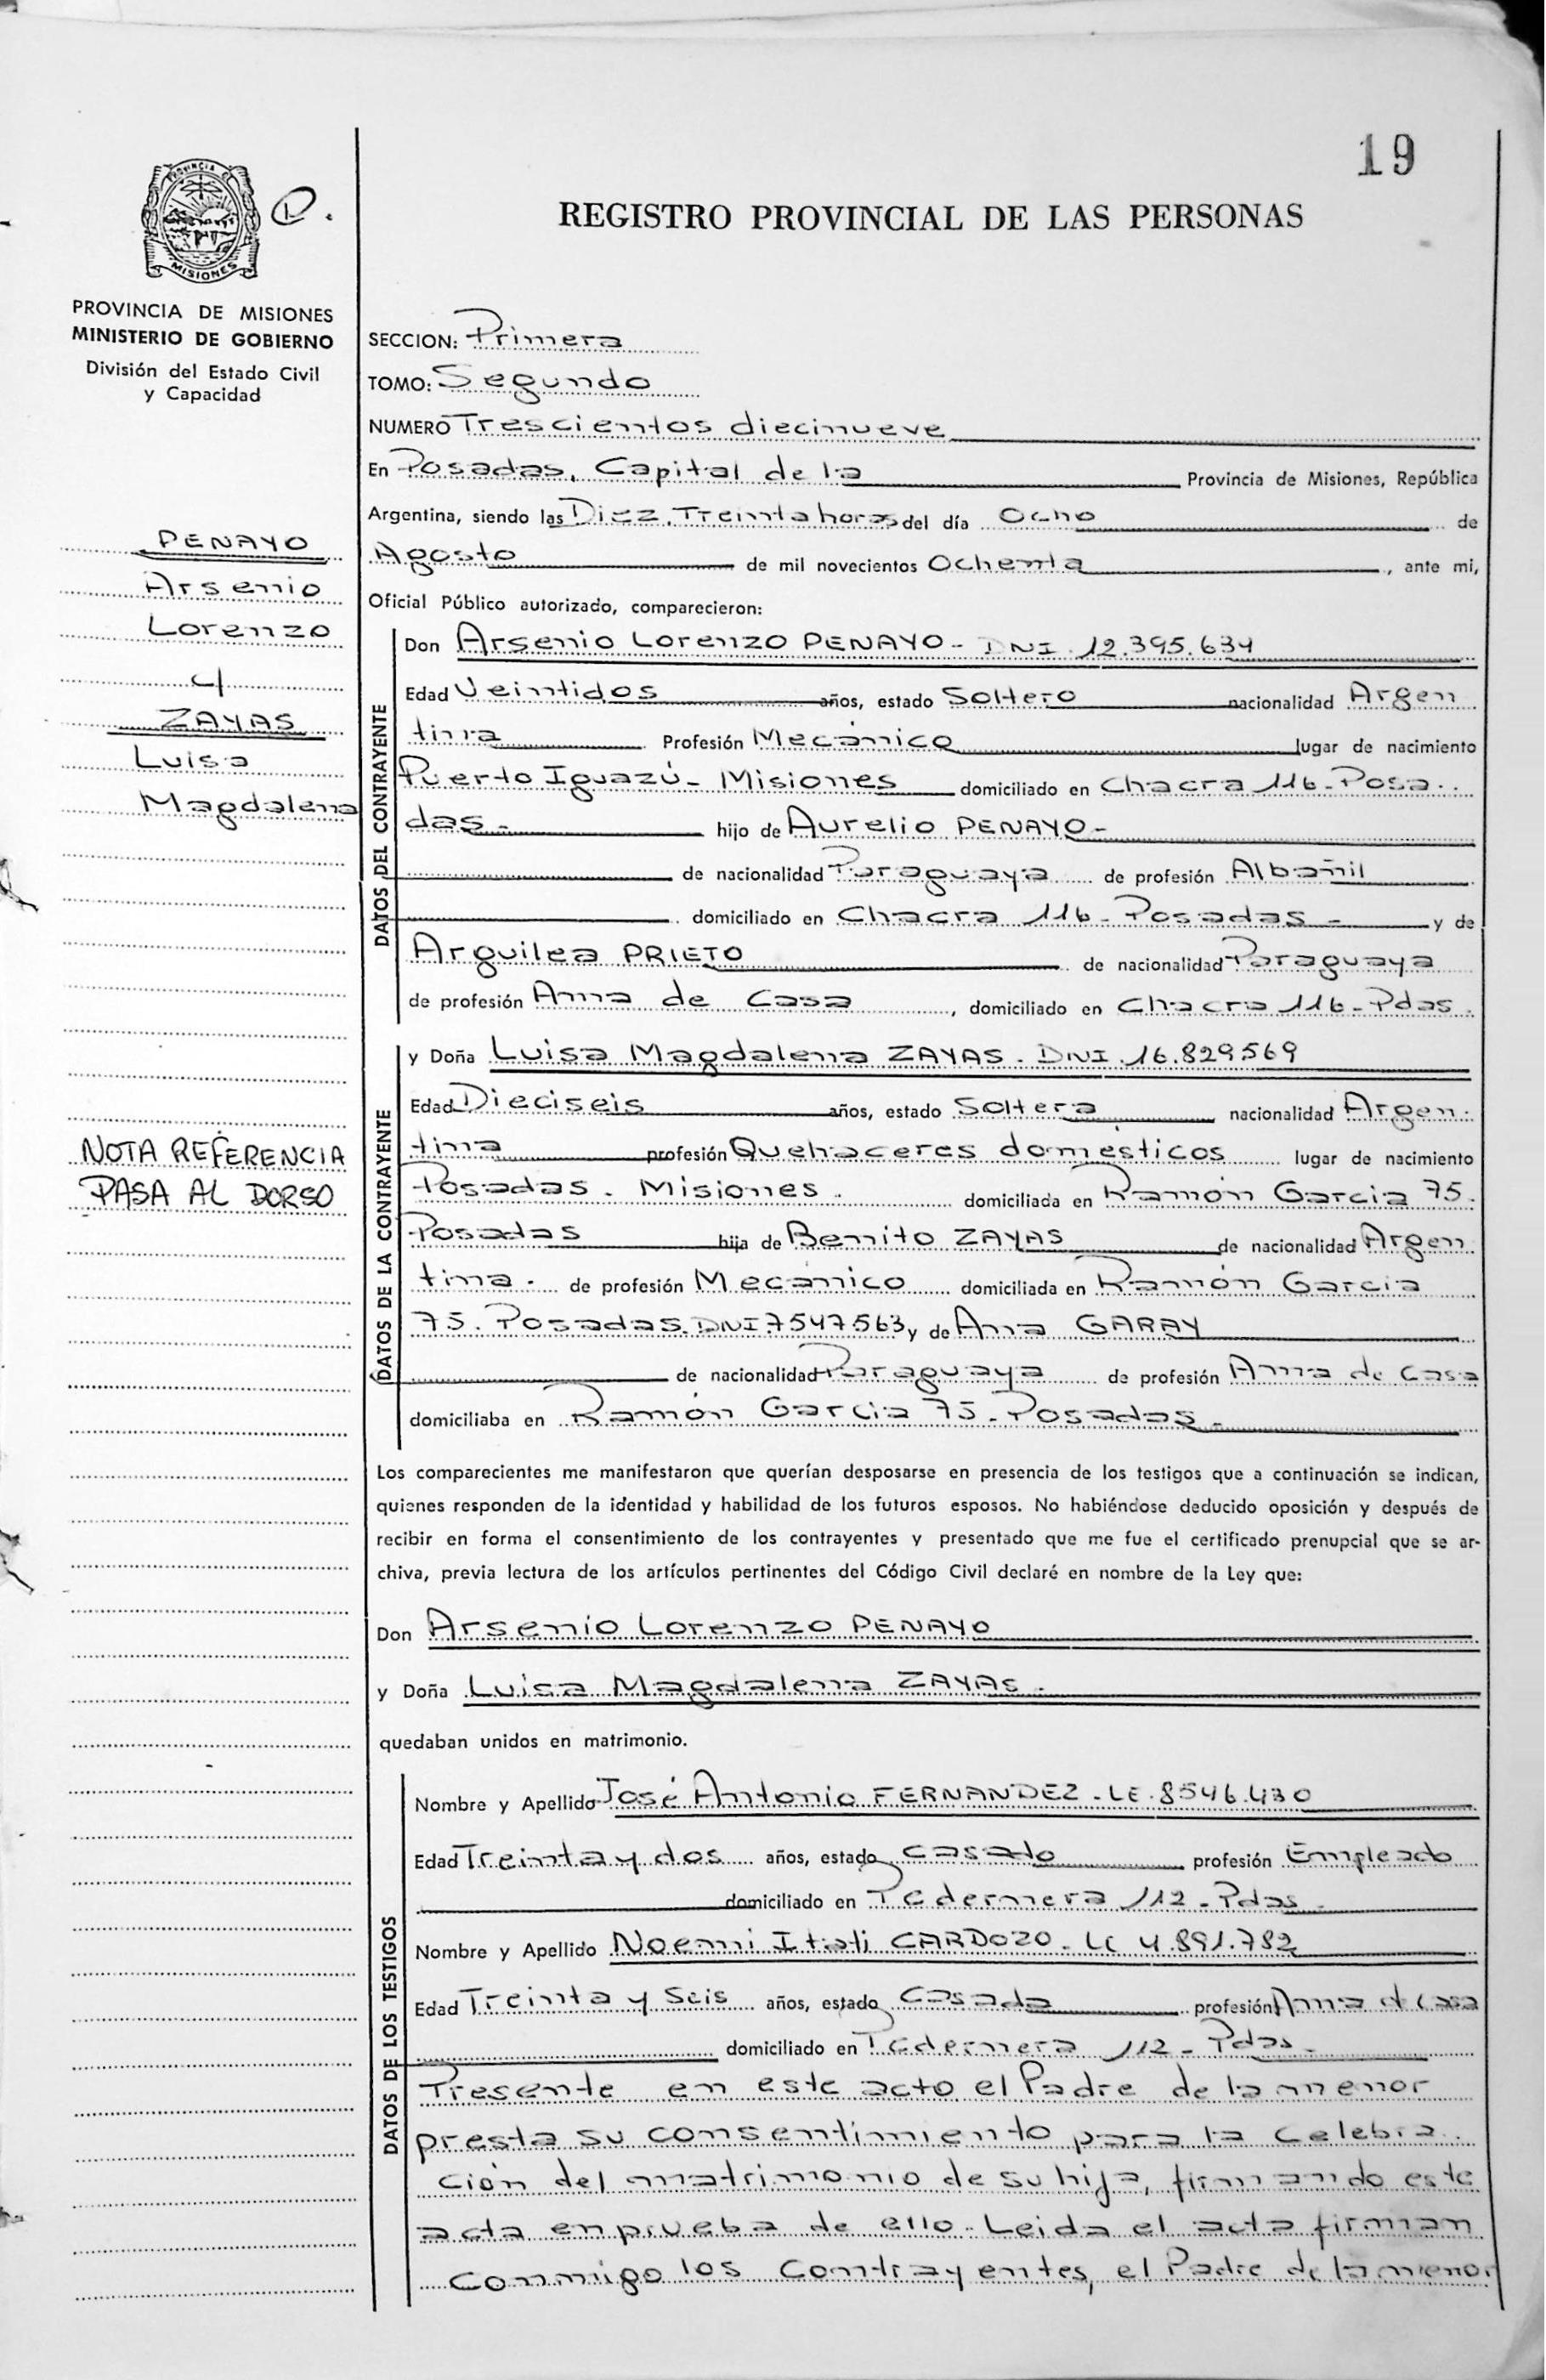 19
PROVINCIA DE
MISIONES
REGISTRO PROVINCIAL DE LAS PERSONAS
PROVINCIA DE MISIONES
MINISTERIO DE GOBIERNO
División del Estado Civil
y Capacidad
PENAYO
Arsenio
Lorenzo
y
ZAYAS
Luisa
Magdalena
NOTA REFERENCIA
PASA AL DORSO
SECCION: Primera
TOMO: Segundo
NUMERO Trescientos diecinueve
En Posadas, Capital de la Provincia de Misiones, República
Argentina, siendo las Diez, Treinta horas del día Ocho de
Agosto de mil novecientos Ochenta, ante mi,
Oficial Público autorizado, comparecieron:
DATOS DEL CONTRAYENTE
Don Arsenio Lorenzo PENAYO - DNI. 12.395.634
Edad Veintidos años, estado Soltero nacionalidad Argen
tina Profesión Mecánico lugar de nacimiento
Puerto Iguazú - Misiones domiciliado en Chacra 116 - Posa
das - hijo de Aurelio PENAYO -
de nacionalidad Paraguaya de profesión Albañil
domiciliado en Chacra 116 - Posadas - y de
Arguilea PRIETO de nacionalidad Paraguaya
de profesión Ama de Casa, domiciliado en Chacra 116 - Pdas.
DATOS DE LA CONTRAYENTE
y Doña Luisa Magdalena ZAYAS. DNI. 16.829569
Edad Dieciseis años, estado Soltera nacionalidad Argen
tina profesión Quehaceres domésticos lugar de nacimiento
Posadas. Misiones. domiciliada en Ramón Garcia 75.
Posadas hija de Benito ZAYAS de nacionalidad Argen
tina. de profesión Mecánico domiciliada en Ramón Garcia
75. Posadas. DNI 7547563 y de Ana GARAY
de nacionalidad Paraguaya de profesión Ama de Casa
domiciliaba en Ramón Garcia 75 - Posadas -
Los comparecientes me manifestaron que querían desposarse en presencia de los testigos que a continuación se indican,
quienes responden de la identidad y habilidad de los futuros esposos. No habiéndose deducido oposición y después de
recibir en forma el consentimiento de los contrayentes y presentado que me fue el certificado prenupcial que se ar-
chiva, previa lectura de los artículos pertinentes del Código Civil declaré en nombre de la Ley que:
Don Arsenio Lorenzo PENAYO
y Doña Luisa Magdalena ZAYAS.
quedaban unidos en matrimonio.
DATOS DE LOS TESTIGOS
Nombre y Apellido José Antonio FERNANDEZ - LE. 8546.430
Edad Treinta y dos años, estado Casado profesión Empleado
domiciliado en Pedernera 112 - Pdas.
Nombre y Apellido Noemi Itati CARDOZO - LC 4.891.782
Edad Treinta y Seis años, estado Casada profesión Ama d casa
domiciliado en Pedernera 112 - Pdas.
Presente en este acto el Padre de la menor
presta su consentimiento para la Celebra
ción del matrimonio de su hija, firmando este
acta en prueba de ello. Leida el acta firman
conmigo los contrayentes, el Padre de la menor